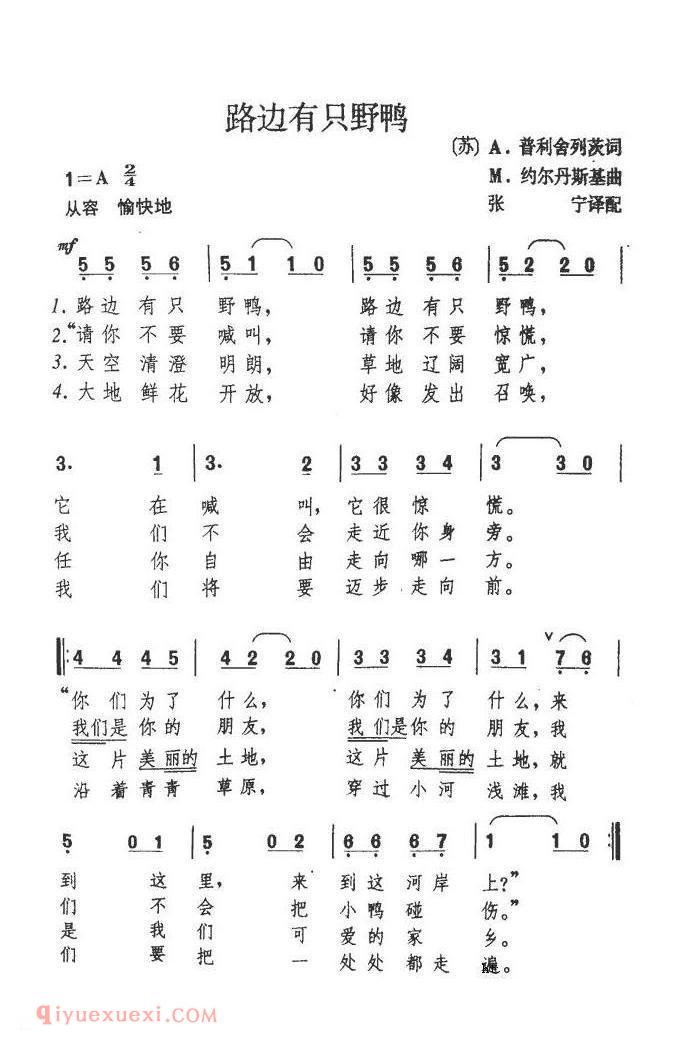 路边有只野鸭
(苏) A．普利舍列茨词
1=A 2/4
M．约尔丹斯基曲
从容 愉快地
张 宁译配
mf
5 5 5 6 | 5 1 1 0 | 5 5 5 6 | 5 2 2 0 |
1. 路边 有只 野鸭， 路边 有只 野鸭，
2.“请你 不要 喊叫， 请你 不要 惊慌，
3. 天空 清澄 明朗， 草地 辽阔 宽广，
4. 大地 鲜花 开放， 好像 发出 召唤，
3. 1 | 3. 2 | 3 3 3 4 | 3 3 0 |
它 在 喊 叫， 它很 惊 慌。
我 们 不 会 走近 你身 旁。
任 你 自 由 走向 哪一 方。
我 们 将 要 迈步 走向 前。
‖: 4 4 4 5 | 4 2 2 0 | 3 3 3 4 | 3 1 ∨ 7 6 |
“你们 为了 什么， 你们 为了 什么，来
我们是 你的 朋友， 我们是 你的 朋友，我
这片 美丽的 土地， 这片 美丽的 土地，就
沿着 青青 草原， 穿过 小河 浅滩，我
5 0 1 | 5 0 2 | 6 6 6 7 | 1 1 0 :‖
到 这 里， 来 到这 河岸 上？”
们 不 会 把 小鸭 碰 伤。”
是 我 们 可 爱的 家 乡。
们 要 把 一 处处 都走 遍。
qiyuexuexi.com